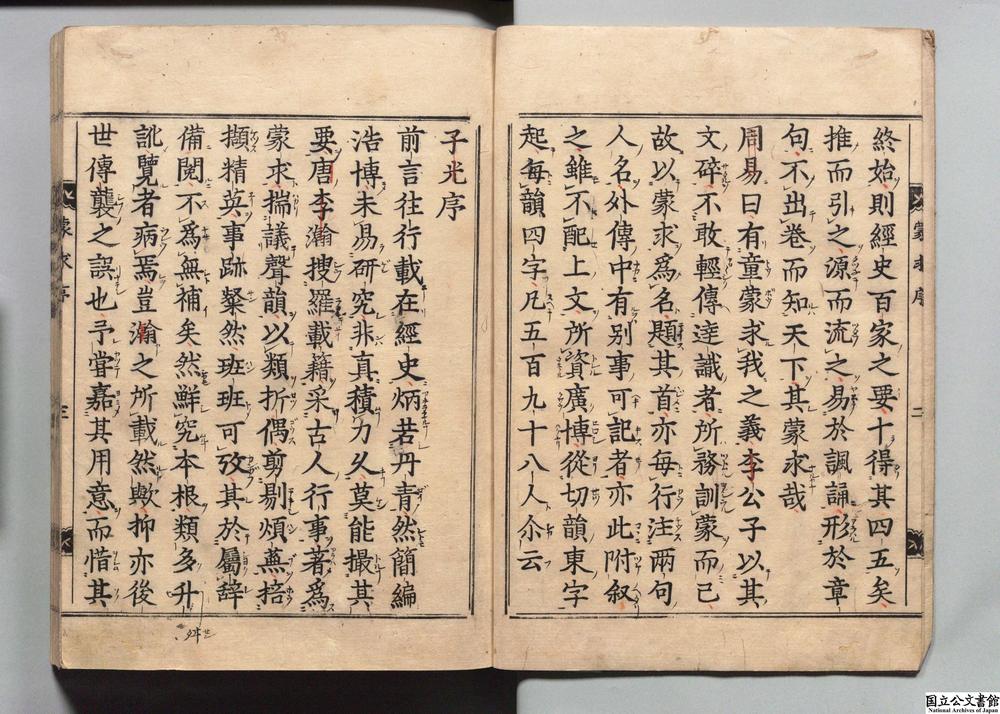 終始則經史百家之要十得其四五矣
推而引之源而流之易於諷誦形於章
句不出卷而知天下其蒙求哉
周易曰有童蒙求我之義李公子以其
文碎不敢輕傳達識者所務訓蒙而已
故以蒙求爲名題其首亦每行注兩句
人名外傳中有别事可記者亦此附叙
之雖不配上文所資廣博從切韻東字
起每韻四字凡五百九十八人尒云
蒙求序
二
子光序
前言往行載在經史炳若丹青然簡編
浩博未易研究非真積力久莫能撮其
要唐李瀚搜羅載籍采古人行事著爲
蒙求揣議聲韻以類折偶剪剔煩蕪掊
擷精英事跡粲然班班可攷其於屬辞
備閱不爲無補矣然鮮究本根類多舛
訛覽者病焉豈瀚之所載然歟抑亦後
世傳襲之誤也予甞嘉其用意而惜其
蒙求序
三
国立公文書館
National Archives of Japan